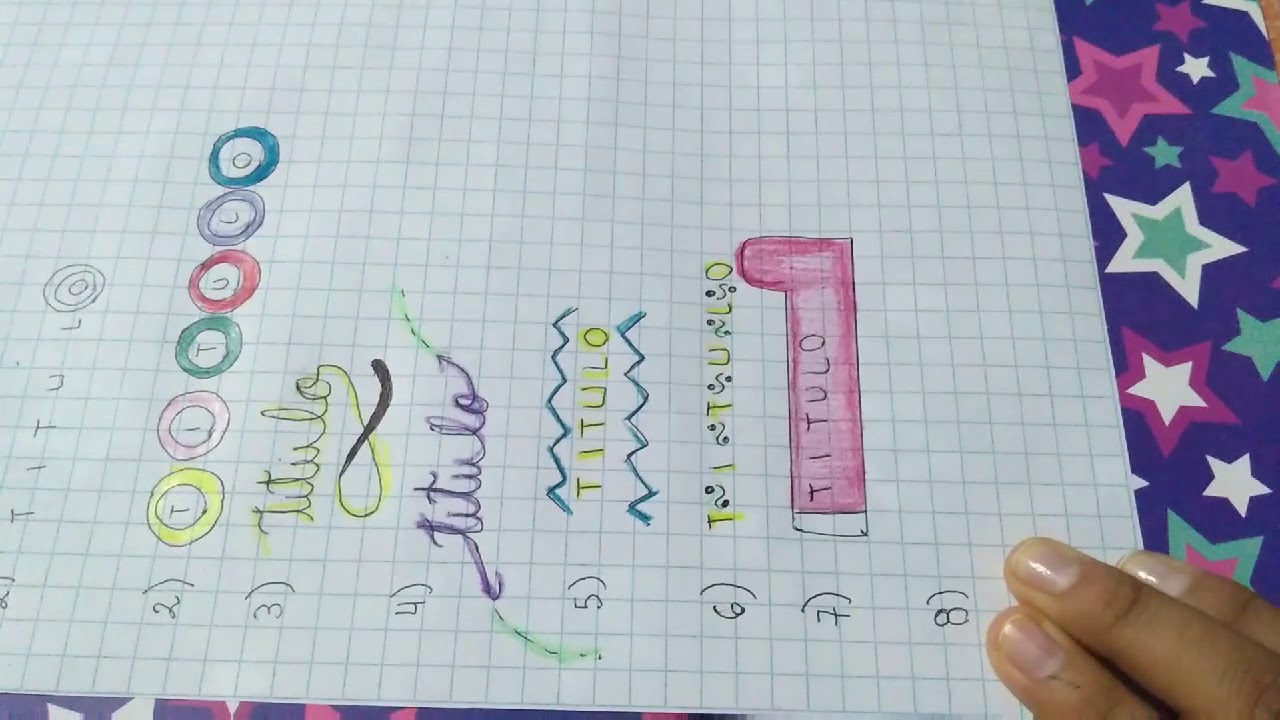 T I T U L O
2) TITULO
3) Titulo
4) Titulo
5) TITULO
6) TITULO
7) TITULO
8)